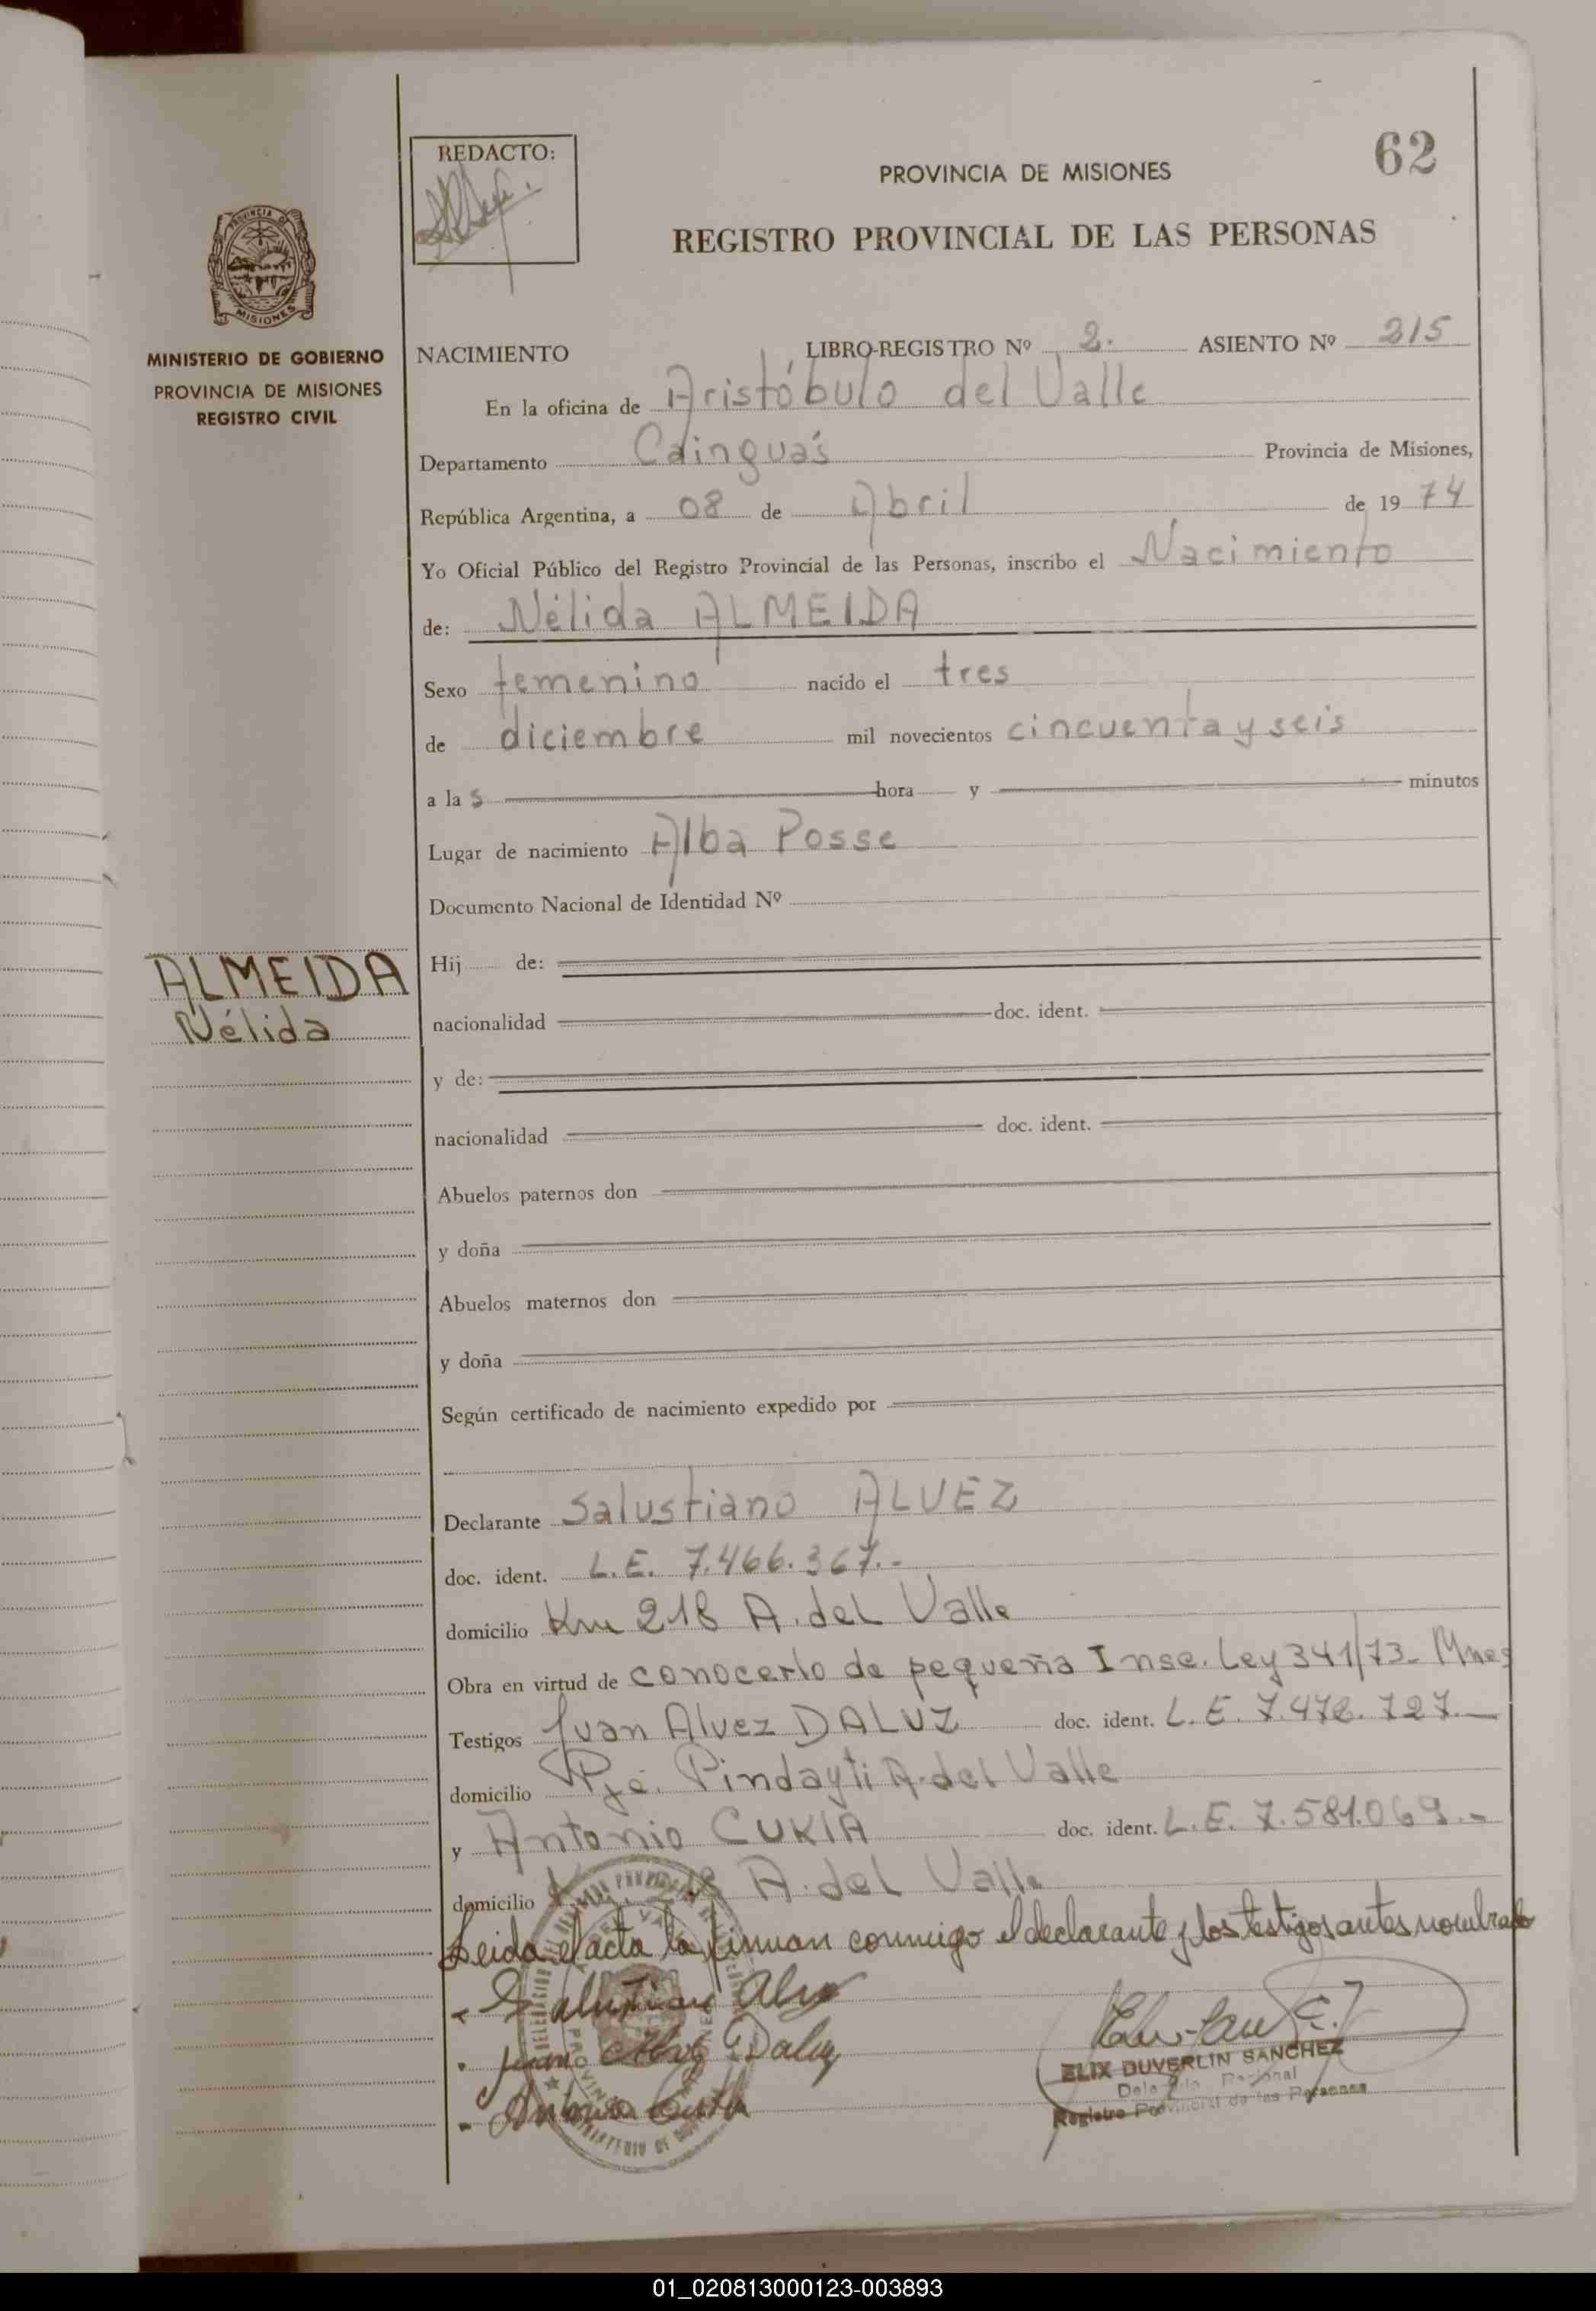 62
REDACTO:
PROVINCIA DE MISIONES
REGISTRO PROVINCIAL DE LAS PERSONAS
PROVINCIA DE
MISIONES
MINISTERIO DE GOBIERNO
PROVINCIA DE MISIONES
REGISTRO CIVIL
NACIMIENTO LIBRO-REGISTRO Nº 2. ASIENTO Nº 215
En la oficina de Aristóbulo del Valle
Departamento Cainguás Provincia de Misiones,
República Argentina, a 08 de Abril de 1974
Yo Oficial Público del Registro Provincial de las Personas, inscribo el Nacimiento
de: Nélida ALMEIDA
Sexo femenino nacido el tres
de diciembre mil novecientos cincuenta y seis
a las hora y minutos
Lugar de nacimiento Alba Posse
Documento Nacional de Identidad Nº
ALMEIDA
Nélida
Hij de:
nacionalidad doc. ident.
y de:
nacionalidad doc. ident.
Abuelos paternos don
y doña
Abuelos maternos don
y doña
Según certificado de nacimiento expedido por
Declarante Salustiano ALVEZ
doc. ident. L.E. 7.466.367.-
domicilio Km 218 A. del Valle
Obra en virtud de conocerlo de pequeña Insc. Ley 341/73- Mnes
Testigos Juan Alvez DALUZ doc. ident. L.E. 7.478.727.-
domicilio Pje. Pindayti A. del Valle
y Antonio CUKLA doc. ident. L.E. 7.581.069.-
domicilio A. del Valle
Leida el acta la firman conmigo el declarante y los testigos antes nombrado
Salustiano Alvez
Juan Alvez Daluz
Antonio Cukla
ELIX DUVERLIN SANCHEZ
Registro Provincial de las Personas
01_020813000123-003893